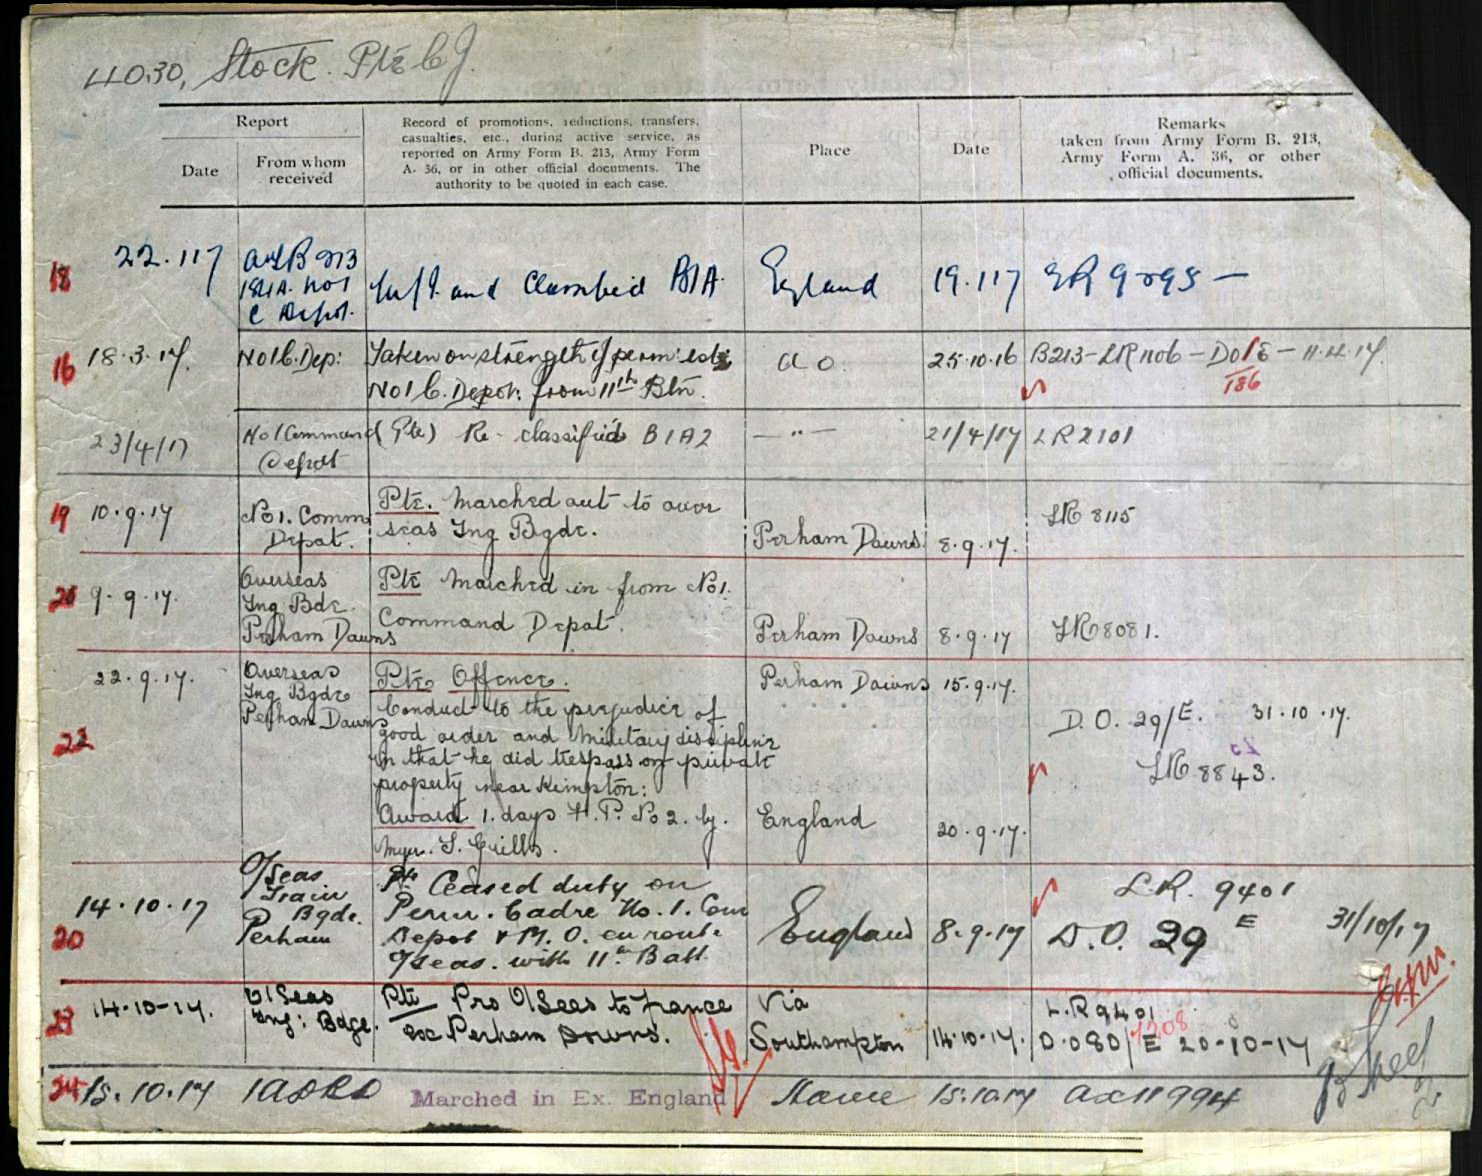 4030, Stock. Pte C J.
Report
Date
From whom
received
Record of promotions, reductions, transfers,
casualties, etc., during active service, as
reported on Army Form B. 213, Army Form
A. 36, or in other official documents. The
authority to be quoted in each case.
Place
Date
Remarks
taken from Army Form B. 213,
Army Form A. 36, or other
official documents.
18 22.1.17 B213
No 1
C Depot. and Classified B1A. England 19.1.17 LR 9295 —
16 18.3.17. No 1 C. Dep: Taken on strength of perm: estb
No 1 C. Depot. from 11th Btn. 25.10.16 B213 - LR 1106 - DO/E - 11.4.17.
186
23/4/17 No 1 Command (Pte) Re-classified B1A2 — " — 21/4/17 LR 2101
Depot
19 10.9.17 No 1. Comm
Depot. Pte. Marched out to over
seas Tng Bgde. Perham Downs 8.9.17. LR 8115
20 9.9.17. Overseas
Tng Bde.
Perham Downs Pte Marched in from No 1.
Command Depot. Perham Downs 8.9.17 LR 8081.
22.9.17. Overseas
Tng Bgde
Perham Downs Pte Offence. Perham Downs 15.9.17.
22 Conduct to the prejudice of
good order and Military discipline
in that he did trespass on private
property near Kimpton:
D.O. 29/E. 31.10.17.
LR 8843.
Award 1. days F.P. No 2. by. England 20.9.17.
S. Grills.
20 14.10.17 O/Seas
Train
Bgde.
Perham Pte Ceased duty on
Perm. Cadre No. 1. Com
Depot & M.O. en route
O/Seas. with 11th Batt. England 8.9.17 L.R. 9401
D.O. 29 E 31/10/17
23 14-10-17. O/Seas
Tng: Bdge. Pte Pro O/Seas to France
ex Perham Downs. Via
Southampton 14.10.17. L.R 9401
D.O 80/E 20-10-17
1308
24 15.10.17 Marched in Ex. England Havre 15.10.17